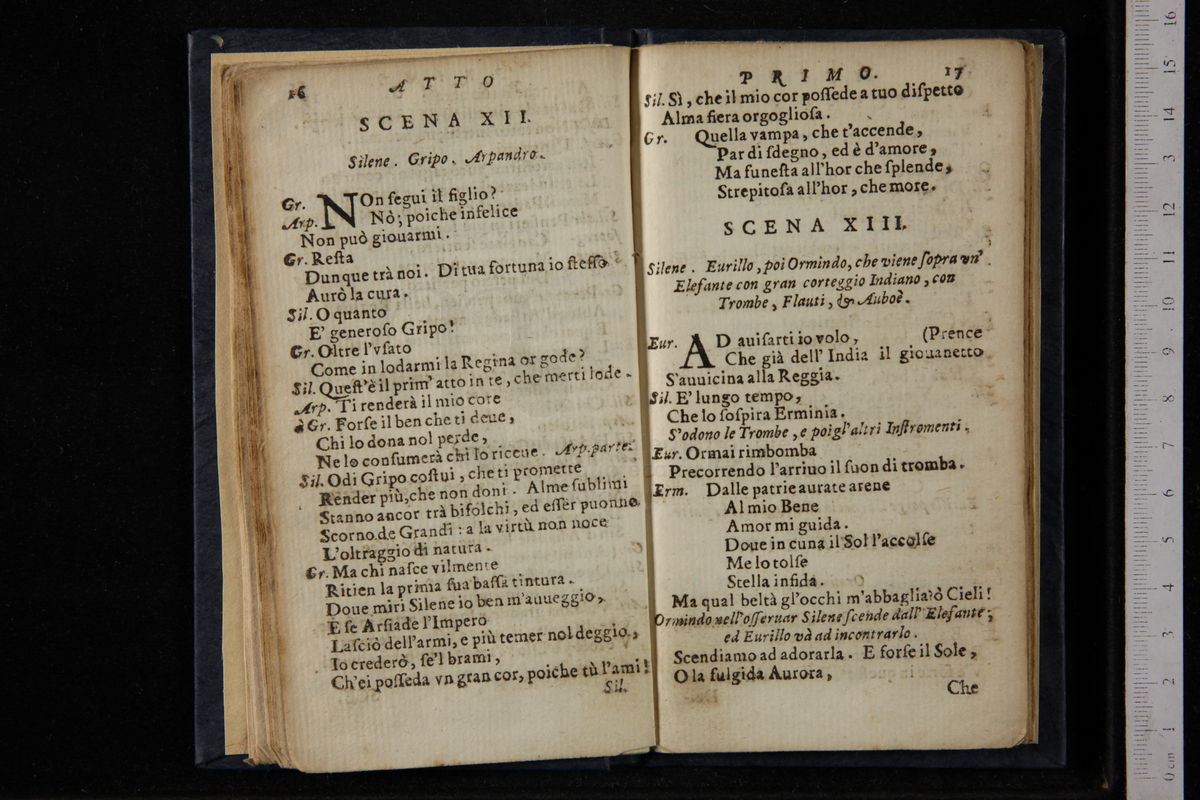 16
ATTO
SCENA XII.
Silene. Gripo. Arpandro.
Gr. NOn ſegui il figlio?
Arp. Nò; poiche infelice
Non può giouarmi.
Gr. Reſta
Dunque trà noi. Di tua fortuna io ſteſſo
Aurò la cura.
Sil. O quanto
E' generoſo Gripo!
Gr. Oltre l'vſato
Come in lodarmi la Regina or gode?
Sil. Queſt'è il prim' atto in te, che merti lode.
Arp. Ti renderà il mio core
à Gr. Forſe il ben che ti deue,
Chi lo dona nol perde,
Ne lo conſumerà chi lo riceue. Arp. parte.
Sil. Odi Gripo coſtui, che ti promette
Render più, che non doni. Alme ſublimi
Stanno ancor trà bifolchi, ed eſſer puonno
Scorno de Grandi: a la virtù non noce
L'oltraggio di natura.
Gr. Ma chi naſce vilmente
Ritien la prima ſua baſſa tintura.
Doue miri Silene io ben m'auueggio,
E ſe Arſiade l'Impero
Laſciò dell'armi, e più temer nol deggio,
Io crederò, ſe'l brami,
Ch'ei poſſeda vn gran cor, poiche tù l'ami!
Sil.
PRIMO.
17
Sil. Sì, che il mio cor poſſede a tuo diſpetto
Alma fiera orgoglioſa.
Gr. Quella vampa, che t'accende,
Par di ſdegno, ed è d'amore,
Ma funeſta all'hor che ſplende,
Strepitoſa all'hor, che more.
SCENA XIII.
Silene. Eurillo, poi Ormindo, che viene ſopra vn'
Elefante con gran corteggio Indiano, con
Trombe, Flauti, & Auboè.
Eur. AD auiſarti io volo, (Prence
Che già dell' India il giouanetto
S'auuicina alla Reggia.
Sil. E' lungo tempo,
Che lo ſoſpira Erminia.
S'odono le Trombe, e poi gl'altri Inſtromenti.
Eur. Ormai rimbomba
Precorrendo l'arriuo il ſuon di tromba.
Erm. Dalle patrie aurate arene
Al mio Bene
Amor mi guida.
Doue in cuna il Sol l'accolſe
Me lo tolſe
Stella infida.
Ma qual beltà gl'occhi m'abbaglia? ò Cieli!
Ormindo nell'oſſeruar Silene ſcende dall' Elefante,
ed Eurillo và ad incontrarlo.
Scendiamo ad adorarla. E forſe il Sole,
O la fulgida Aurora,
Che
0 cm 1 2 3 4 5 6 7 8 9 10 11 12 13 14 15 16